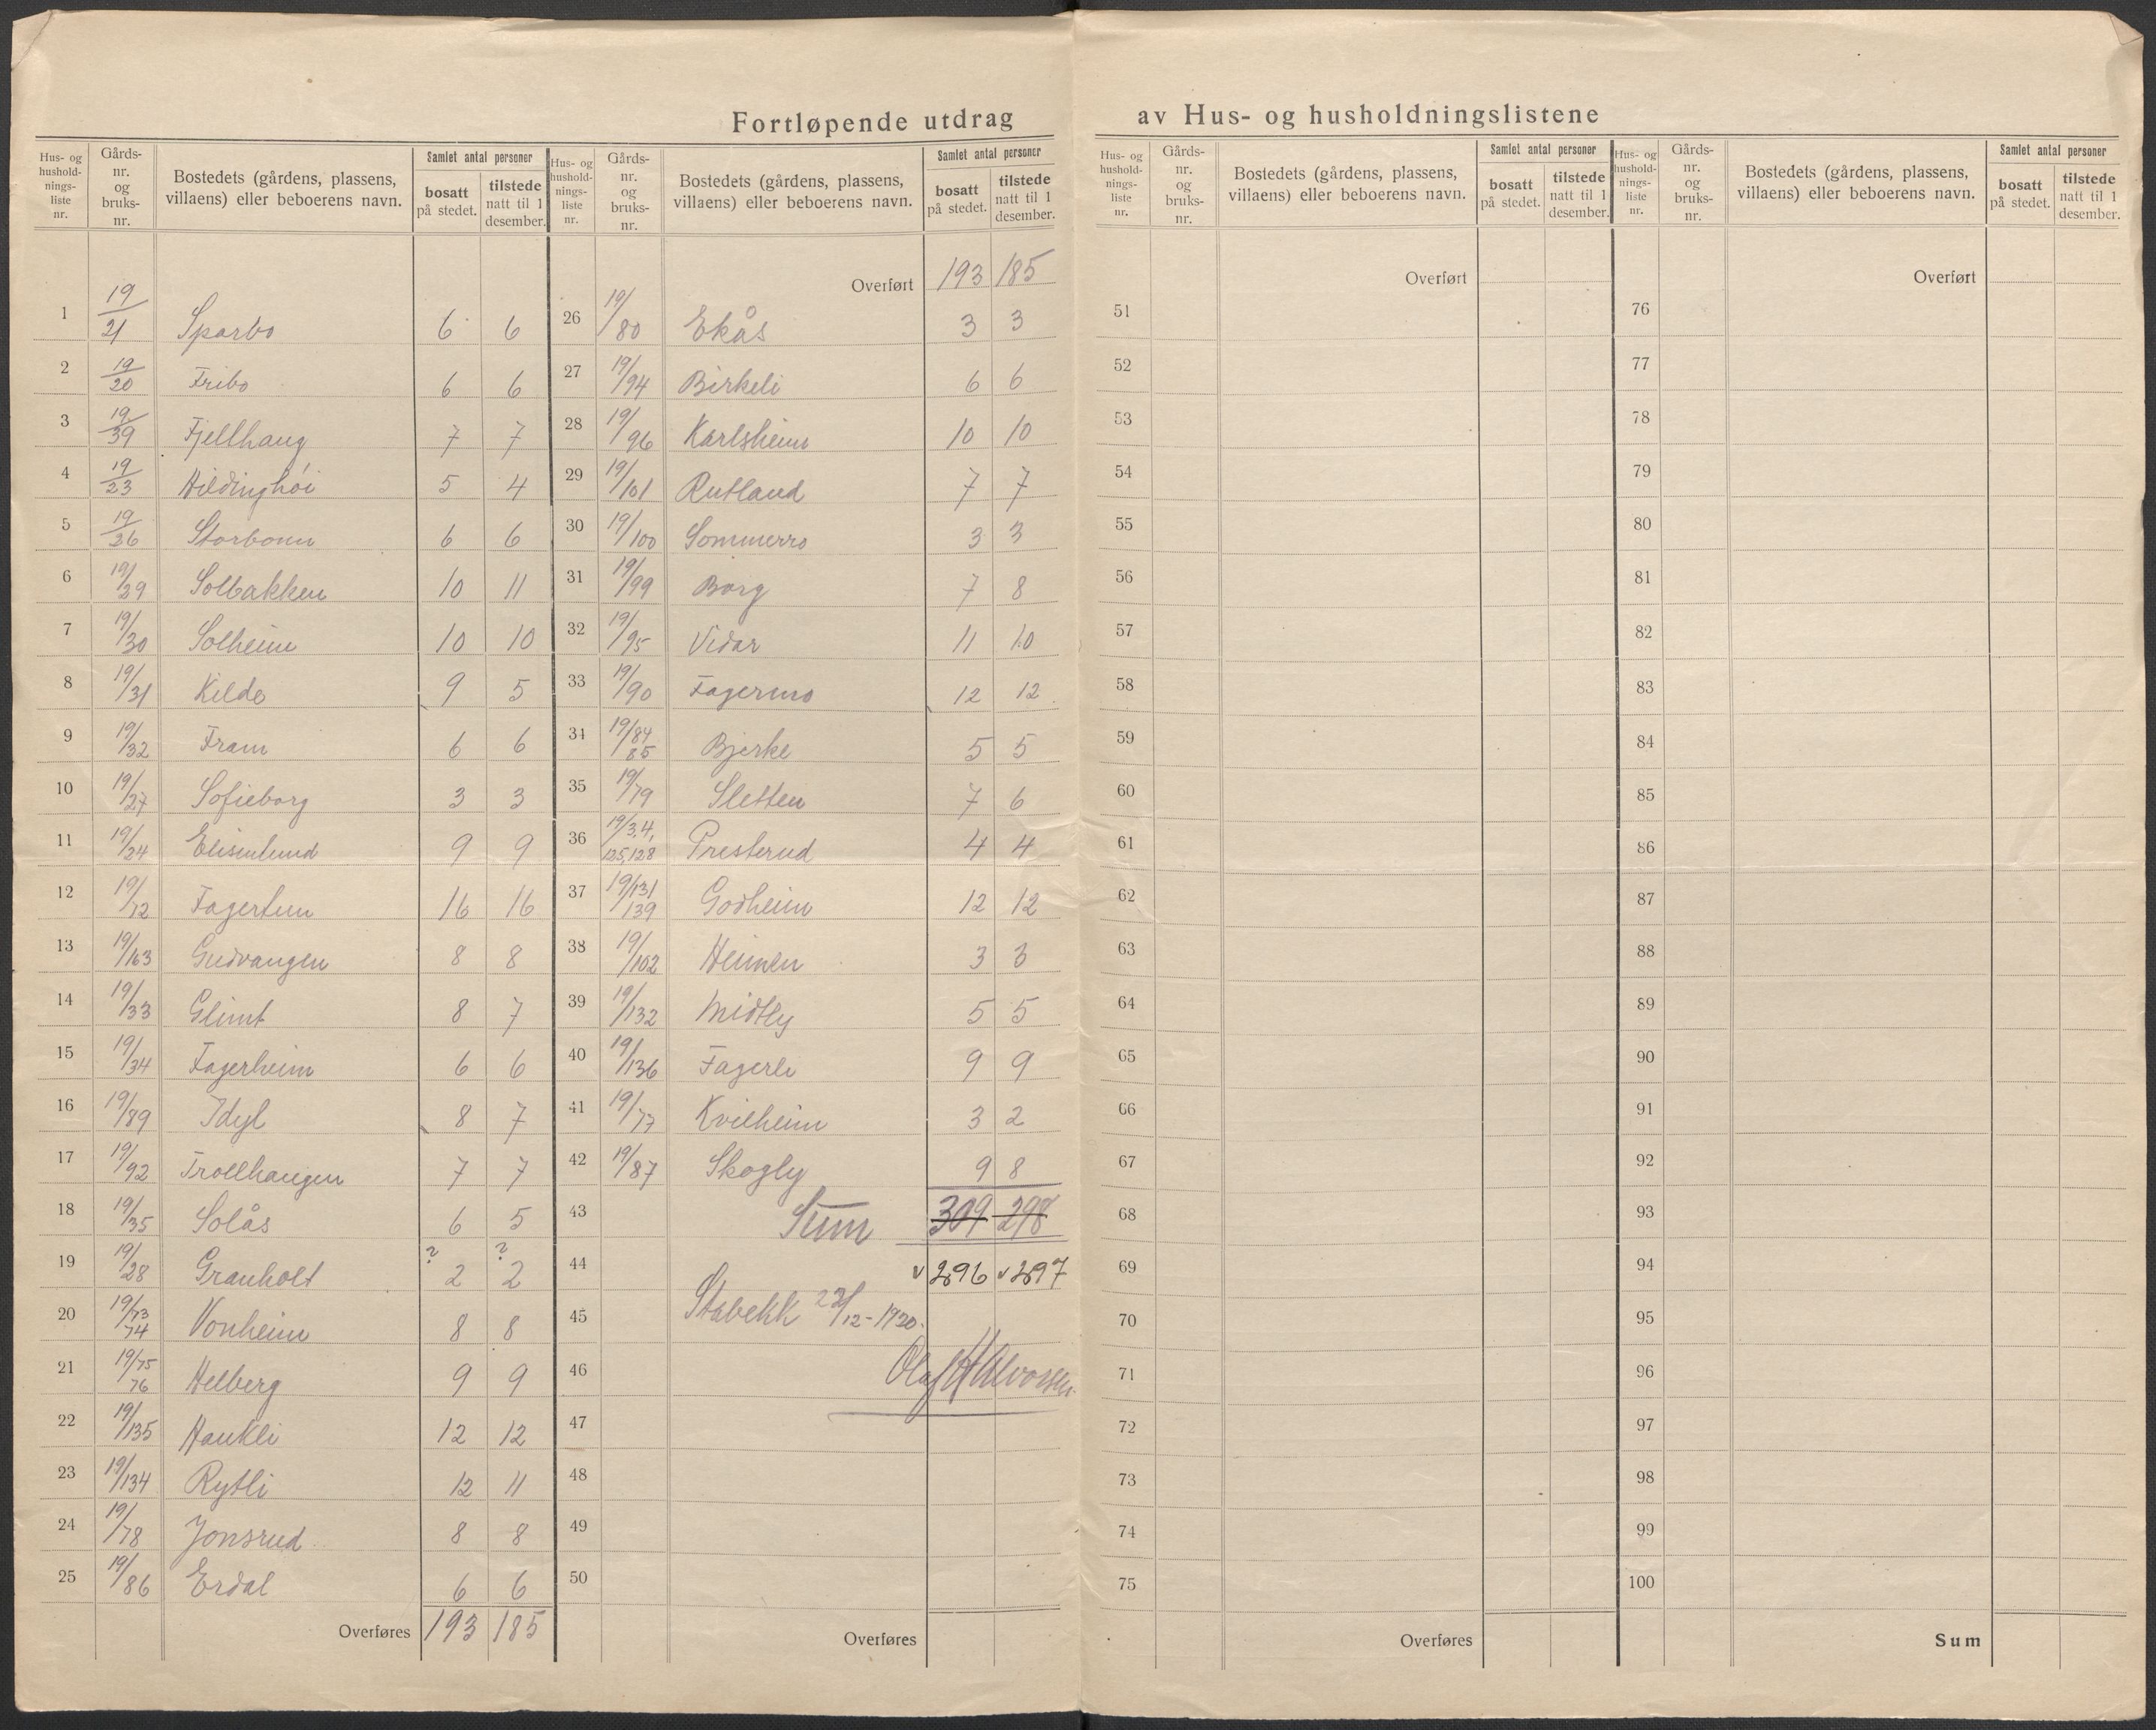 Fortløpende utdrag av Hus- og husholdningslistene
Hus- og hushold-nings-liste nr. Gårds-nr. og bruks-nr. Bostedets (gårdens, plassens, villaens) eller beboerens navn. Samlet antal personer bosatt på stedet. tilstede natt til 1 desember.
1 19/21 Sparbo 6 6
2 19/20 Fribo 6 6
3 19/39 Fjellhaug 7 7
4 19/23 Hildinghøi 5 4
5 19/26 Storbonn 6 6
6 19/29 Solbakken 10 11
7 19/30 Solheim 10 10
8 19/31 Kilde 9 5
9 19/32 Fram 6 6
10 19/27 Sofieborg 3 3
11 19/24 Elisenlund 9 9
12 19/12 Fagertun 16 16
13 19/163 Gudvangen 8 8
14 19/33 Glimt 8 7
15 19/34 Fagerheim 6 6
16 19/89 Idyl 8 7
17 19/92 Trollhaugen 7 7
18 19/35 Solås 6 5
19 19/28 Granholt ? 2 ? 2
20 19/73 74 Vonheim 8 8
21 19/75 76 Helberg 9 9
22 19/135 Haukli 12 12
23 19/134 Rytli 12 11
24 19/78 Jonsrud 8 8
25 19/86 Erdal 6 6
Overføres 193 185
Hus- og hushold-nings-liste nr. Gårds-nr. og bruks-nr. Bostedets (gårdens, plassens, villaens) eller beboerens navn. Samlet antal personer bosatt på stedet. tilstede natt til 1 desember.
Overført 193 185
26 19/80 Ekås 3 3
27 19/94 Birkeli 6 6
28 19/96 Karlsheim 10 10
29 19/101 Rutland 7 7
30 19/100 Sommerro 3 3
31 19/99 Borg 7 8
32 19/95 Vidar 11 10
33 19/90 Fagermo 12 12
34 19/84 85 Bjerke 5 5
35 19/79 Sletten 7 6
36 19/3,4, 125,128 Presterud 4 4
37 19/131 139 Godheim 12 12
38 19/102 Heimen 3 3
39 19/132 Midtly 5 5
40 19/136 Fagerli 9 9
41 19/77 Kvilheim 3 2
42 19/87 Skogly 9 8
43 Sum 309 298
44 v 296 v 297
45 Stabekk 22/12-1920.
46 Olaf Halvorsen
47
48
49
50
Overføres
Hus- og hushold-nings-liste nr. Gårds-nr. og bruks-nr. Bostedets (gårdens, plassens, villaens) eller beboerens navn. Samlet antal personer bosatt på stedet. tilstede natt til 1 desember.
Overført
51
52
53
54
55
56
57
58
59
60
61
62
63
64
65
66
67
68
69
70
71
72
73
74
75
Overføres
Hus- og hushold-nings-liste nr. Gårds-nr. og bruks-nr. Bostedets (gårdens, plassens, villaens) eller beboerens navn. Samlet antal personer bosatt på stedet. tilstede natt til 1 desember.
Overført
76
77
78
79
80
81
82
83
84
85
86
87
88
89
90
91
92
93
94
95
96
97
98
99
100
Sum